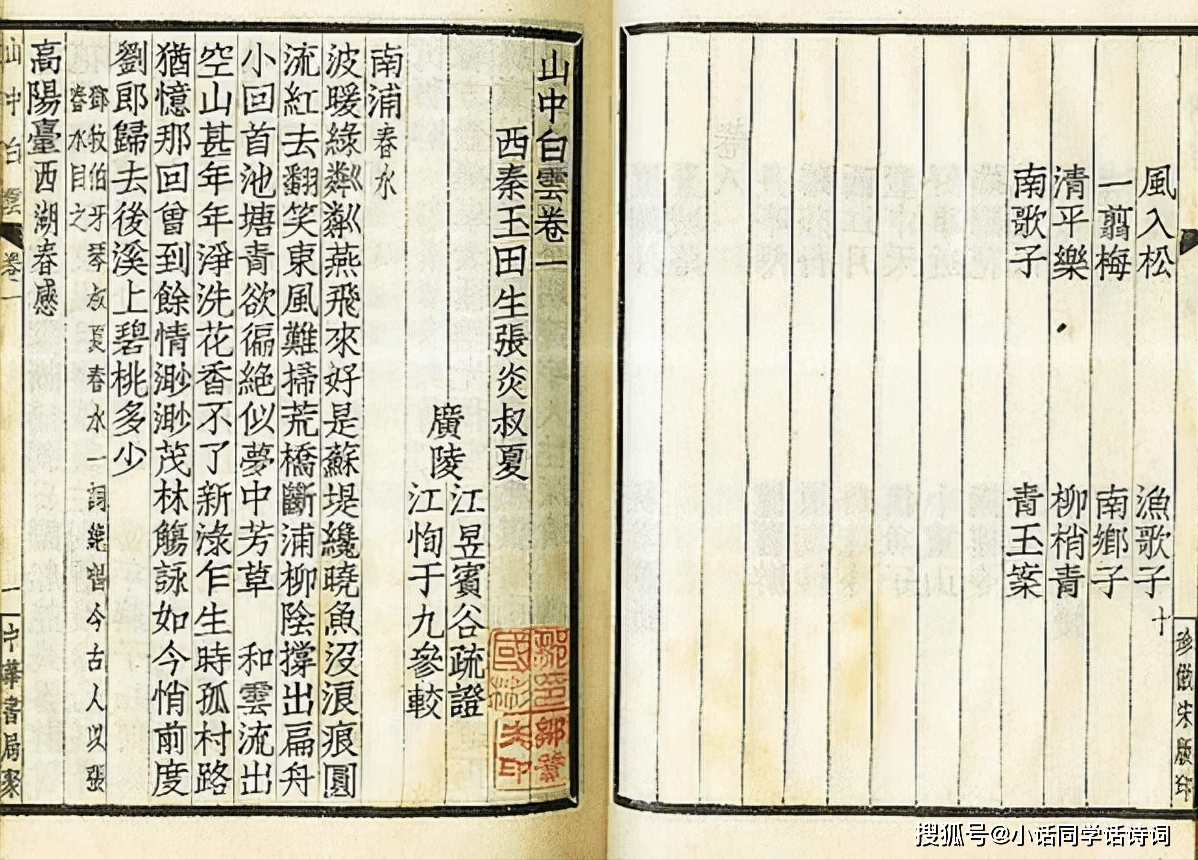 風入松
漁歌子十
一翦梅
南鄉子
清平樂
柳梢青
南歌子
青玉案
珍倣宋版印
山中白雲卷一
西秦玉田生張炎叔夏
廣陵
江昱賓谷疏證
江恂于九參較
南浦春水
波暖綠粼粼燕飛來好是蘇堤纔曉魚沒浪痕圓
流紅去翻笑東風難掃荒橋斷浦柳陰撐出扁舟
小回首池塘青欲徧絕似夢中芳草　和雲流出
空山甚年年淨洗花香不了新淥乍生時孤村路
猶憶那回曾到餘情渺渺茂林觴詠如今悄前度
劉郎歸去後溪上碧桃多少
鄧牧伯牙琴叔夏春水一詞絕唱今古人以張
春水目之
高陽臺西湖春感
山中白雲　卷一
一　中華書局聚
搜狐号@小话同学话诗词